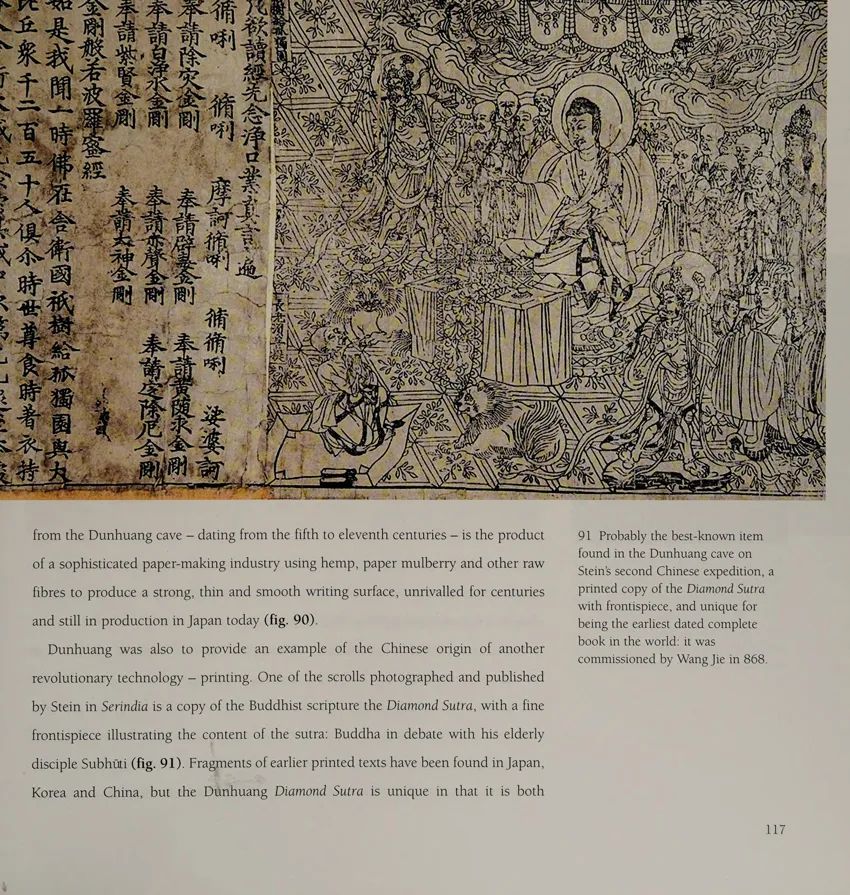 凡欲讀經先念淨口業真言一遍
脩唎 脩唎 摩訶脩唎 脩脩唎 娑婆訶
奉請除灾金剛 奉請辟毒金剛 奉請黃隨求金剛
奉請白淨水金剛 奉請赤聲金剛 奉請定除厄金剛
奉請紫賢金剛 奉請大神金剛
金剛般若波羅蜜經
如是我聞一時佛在舍衛國祇樹給孤獨園與大
比丘衆千二百五十人俱尒時世尊食時著衣持
from the Dunhuang cave – dating from the fifth to eleventh centuries – is the product
of a sophisticated paper-making industry using hemp, paper mulberry and other raw
fibres to produce a strong, thin and smooth writing surface, unrivalled for centuries
and still in production in Japan today (fig. 90).
Dunhuang was also to provide an example of the Chinese origin of another
revolutionary technology – printing. One of the scrolls photographed and published
by Stein in Serindia is a copy of the Buddhist scripture the Diamond Sutra, with a fine
frontispiece illustrating the content of the sutra: Buddha in debate with his elderly
disciple Subhūti (fig. 91). Fragments of earlier printed texts have been found in Japan,
Korea and China, but the Dunhuang Diamond Sutra is unique in that it is both
91 Probably the best-known item
found in the Dunhuang cave on
Stein's second Chinese expedition, a
printed copy of the Diamond Sutra
with frontispiece, and unique for
being the earliest dated complete
book in the world: it was
commissioned by Wang Jie in 868.
117